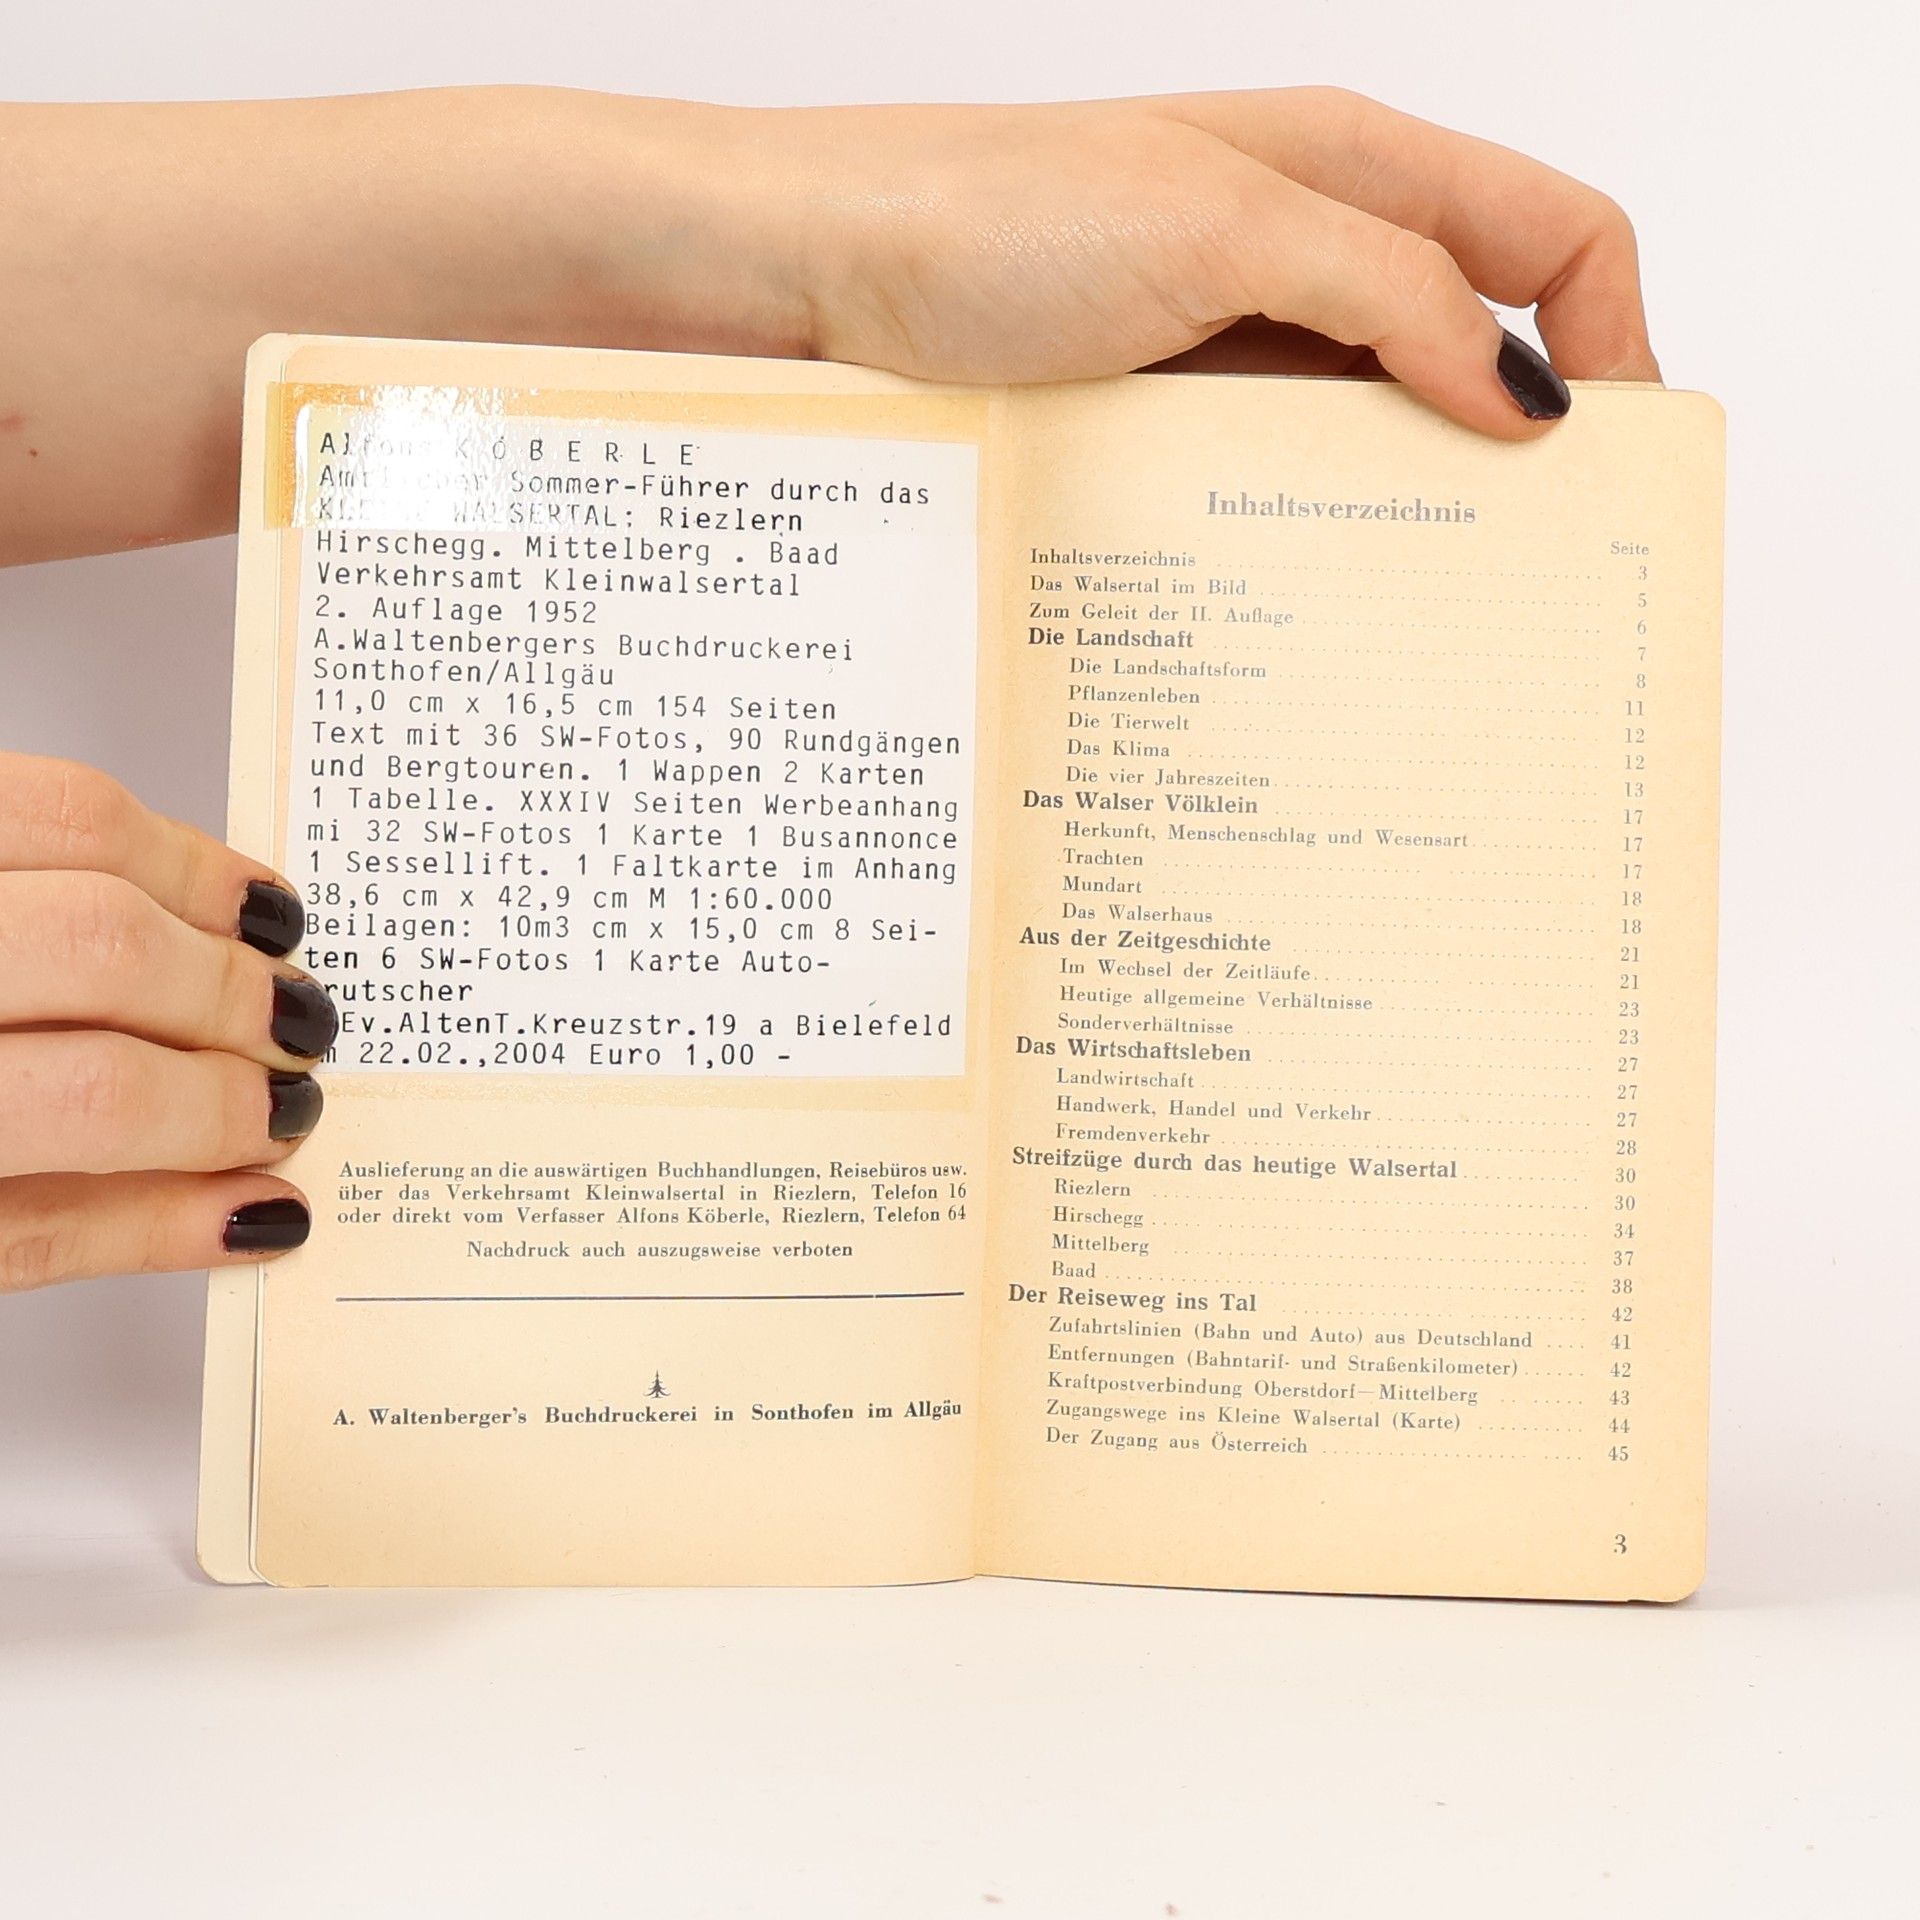 Alfons K Ö B E R L E
Amtlicher Sommer-Führer durch das
KLEINE WALSERTAL: Riezlern
Hirschegg. Mittelberg . Baad
Verkehrsamt Kleinwalsertal
2. Auflage 1952
A.Waltenbergers Buchdruckerei
Sonthofen/Allgäu
11,0 cm x 16,5 cm 154 Seiten
Text mit 36 SW-Fotos, 90 Rundgängen
und Bergtouren. 1 Wappen 2 Karten
1 Tabelle. XXXIV Seiten Werbeanhang
mi 32 SW-Fotos 1 Karte 1 Busannonce
1 Sessellift. 1 Faltkarte im Anhang
38,6 cm x 42,9 cm M 1:60.000
Beilagen: 10m3 cm x 15,0 cm 8 Sei-
ten 6 SW-Fotos 1 Karte Auto-
rutscher
Ev.AltenT.Kreuzstr.19 a Bielefeld
22.02.,2004 Euro 1,00 -
Auslieferung an die auswärtigen Buchhandlungen, Reisebüros usw.
über das Verkehrsamt Kleinwalsertal in Riezlern, Telefon 16
oder direkt vom Verfasser Alfons Köberle, Riezlern, Telefon 64
Nachdruck auch auszugsweise verboten
A. Waltenberger's Buchdruckerei in Sonthofen im Allgäu
Inhaltsverzeichnis
Seite
Inhaltsverzeichnis 3
Das Walsertal im Bild 5
Zum Geleit der II. Auflage 6
Die Landschaft 7
Die Landschaftsform 8
Pflanzenleben 11
Die Tierwelt 12
Das Klima 12
Die vier Jahreszeiten 13
Das Walser Völklein 17
Herkunft, Menschenschlag und Wesensart 17
Trachten 17
Mundart 18
Das Walserhaus 18
Aus der Zeitgeschichte 21
Im Wechsel der Zeitläufe 21
Heutige allgemeine Verhältnisse 23
Sonderverhältnisse 23
Das Wirtschaftsleben 27
Landwirtschaft 27
Handwerk, Handel und Verkehr 27
Fremdenverkehr 28
Streifzüge durch das heutige Walsertal 30
Riezlern 30
Hirschegg 34
Mittelberg 37
Baad 38
Der Reiseweg ins Tal 42
Zufahrtslinien (Bahn und Auto) aus Deutschland 41
Entfernungen (Bahntarif- und Straßenkilometer) 42
Kraftpostverbindung Oberstdorf—Mittelberg 43
Zugangswege ins Kleine Walsertal (Karte) 44
Der Zugang aus Österreich 45
3